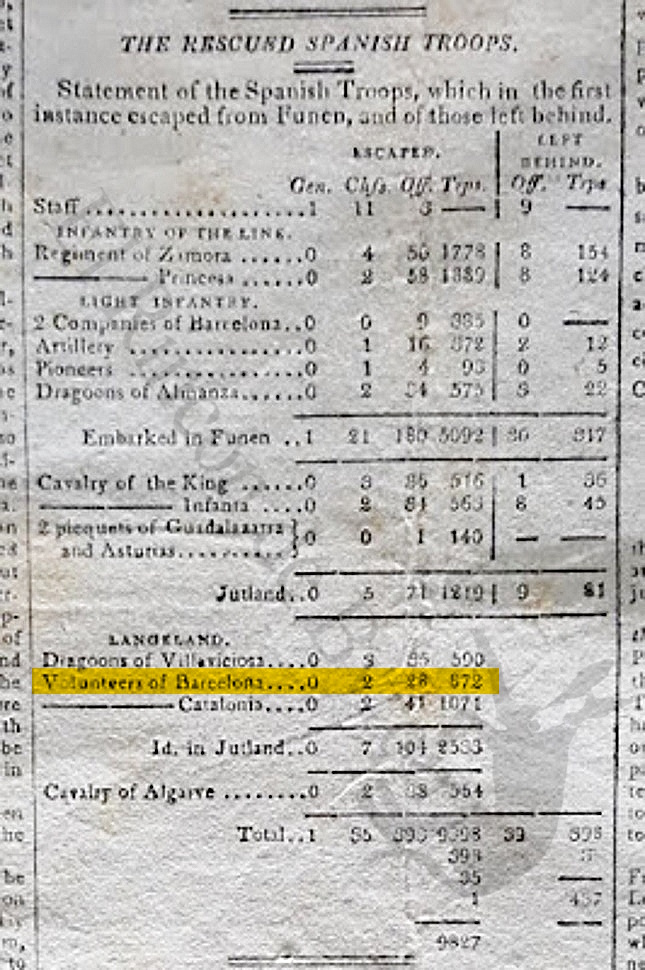 THE RESCUED SPANISH TROOPS.
Statement of the Spanish Troops, which in the first
instance escaped from Funen, and of those left behind.
ESCAPED. LEFT BEHIND.
Gen. Chfs. Off. Trps. Off. Trps
Staff ....................1 11 3 — 9 —
INFANTRY OF THE LINE.
Regiment of Zamora ......0 4 56 1778 8 154
——— Princess ......0 2 58 1889 8 124
LIGHT INFANTRY.
2 Companies of Barcelona..0 0 9 385 0 —
Artillery ................0 1 16 372 2 12
Pioneers ................0 1 4 93 0 5
Dragoons of Almanza......0 2 34 575 3 22
Embarked in Funen ..1 21 180 5092 30 317
Cavalry of the King ......0 3 36 516 1 36
——— Infanta ....0 2 34 563 8 45
2 picquets of Guadalaxarra
and Asturias.......... } 0 0 1 140 — —
Jutland..0 5 71 1219 9 81
LANGELAND.
Dragoons of Villaviciosa....0 3 35 590
Volunteers of Barcelona....0 2 28 872
——— Catalonia....0 2 41 1071
Id. in Jutland..0 7 104 2533
Cavalry of Algarve ........0 2 38 554
Total..1 35 393 9398 39 398
393
35 —
1 437
9827